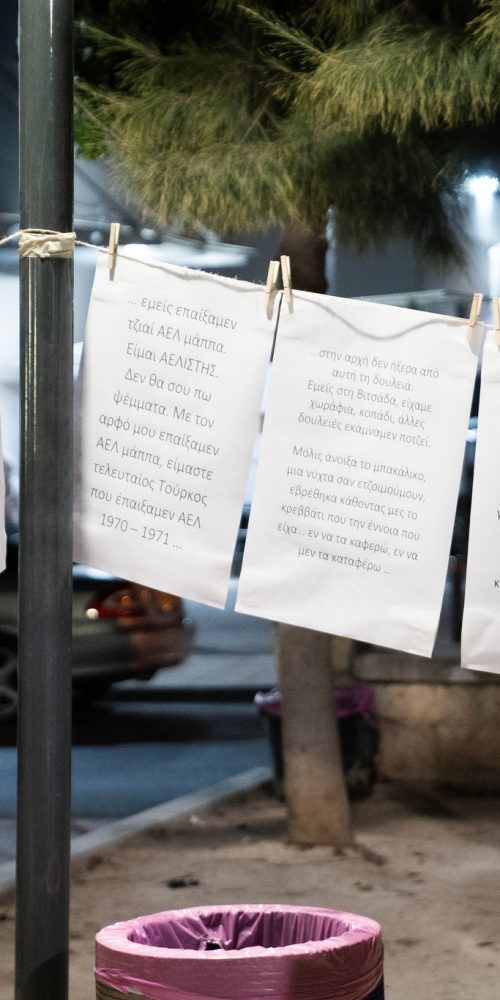 ... εμείς επαίξαμεν
τζιαί ΑΕΛ μάππα.
Είμαι ΑΕΛΙΣΤΗΣ.
Δεν θα σου πω
ψέμματα. Με τον
αρφό μου επαίξαμεν
ΑΕΛ μάππα, είμαστε
τελευταίος Τούρκος
που έπαιξαμεν ΑΕΛ
1970 – 1971 ...
...στην αρχή δεν ήξερα από
αυτή τη δουλειά.
Εμείς στη Βιτσάδα, είχαμε
χωράφια, κοπάδι, άλλες
δουλειές εκάμναμεν ποτζεί.
Μόλις άνοιξα το μπακάλικο,
μια νύχτα σαν ετζοιμούμουν,
εβρέθηκα κάθοντας μες το
κρεββάτι που την έννοια που
είχα... εν να τα καφερώ, εν να
μεν τα καταφέρω ...